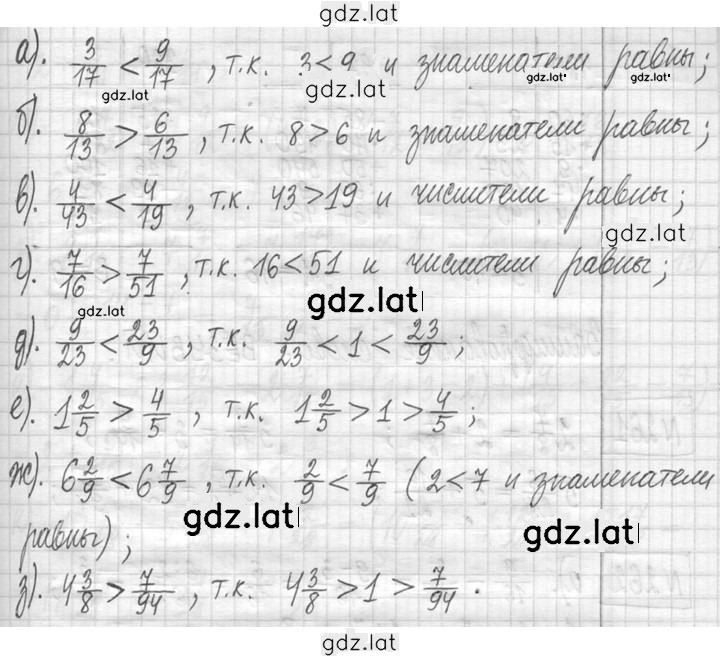 gdz.lat
а). 3/17 < 9/17, т.к. 3<9 и знаменатели равны;
gdz.lat gdz.lat gdz.lat gdz.lat
б). 8/13 > 6/13, т.к. 8>6 и знаменатели равны;
в). 4/43 < 4/19, т.к. 43>19 и числители равны;
gdz.lat
г). 7/16 > 7/51, т.к. 16<51 и числители равны;
gdz.lat gdz.lat
д). 9/23 < 23/9, т.к. 9/23 < 1 < 23/9;
е). 1 2/5 > 4/5, т.к. 1 2/5 > 1 > 4/5;
ж). 6 2/9 < 6 7/9, т.к. 2/9 < 7/9 (2<7 и знаменатели
gdz.lat gdz.lat
равны);
з). 4 3/8 > 7/94, т.к. 4 3/8 > 1 > 7/94.
gdz.lat